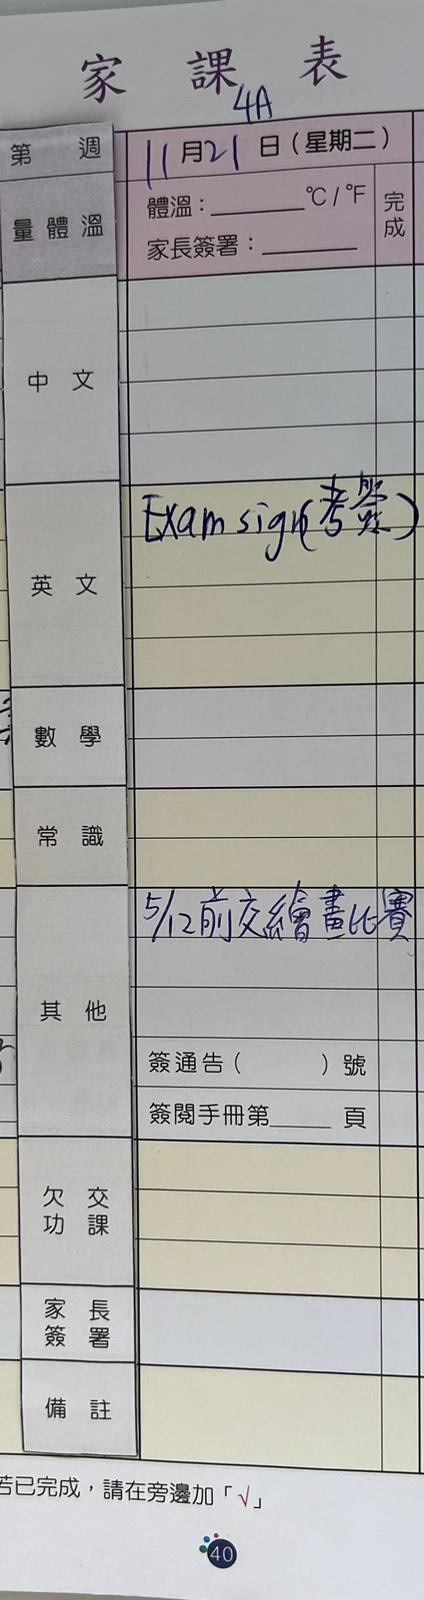 家課表
4A
第 週
11月21日（星期二）
量體溫
體溫：______°C/°F
完成
家長簽署：______
中文
英文
Exam sign(考簽)
數學
常識
其他
5/12前交繪畫比賽
簽通告（ ）號
簽閱手冊第____頁
欠交功課
家長簽署
備註
若已完成，請在旁邊加「√」
40